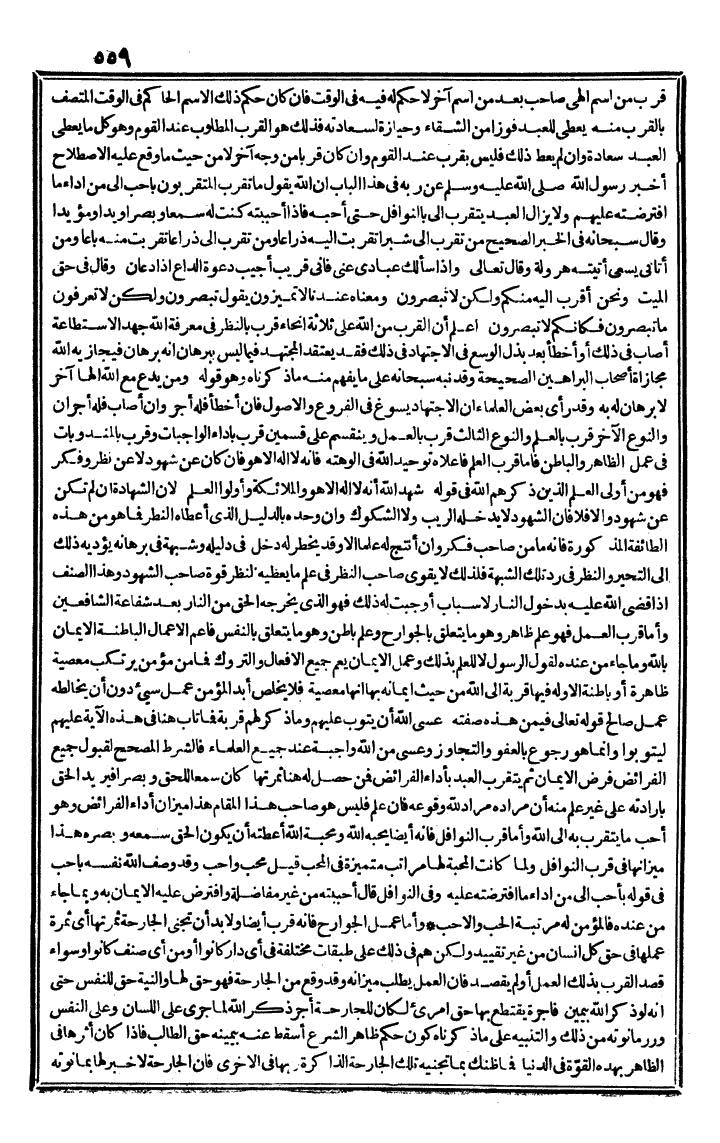 ٥٥٩
قرب من اسم الهى صاحب بعد من اسم آخر لا حكم له فيه فى الوقت فان كان حكم ذلك الاسم الحاكم فى الوقت المتصف
بالقرب منه يعطى للعبد فوزا من الشقاء وحيازة لسعادته فذلك هو القرب المطلوب عند القوم وهو كل ما يعطى
العبد سعادة وان لم يعط ذلك فليس بقرب عند القوم وان كان قربا من وجه آخر لا من حيث ما وقع عليه الاصطلاح
أخبر رسول الله صلى الله عليه وسلم عن ربه فى هذا الباب ان الله يقول ما تقرب المتقربون باحب الى من اداء ما
افترضته عليهم ولا يزال العبد يتقرب الى بالنوافل حتى أحبه فاذا أحببته كنت له سمعا وبصرا ويدا ومؤيدا
وقال سبحانه فى الخبر الصحيح من تقرب الى شبرا تقربت اليه ذراعا ومن تقرب الى ذراعا تقربت منه باعا ومن
أتانى يسعى أتيته هرولة وقال تعالى واذا سألك عبادى عنى فانى قريب أجيب دعوة الداع اذا دعان وقال فى حق
الميت ونحن أقرب اليه منكم ولكن لا تبصرون ومعناه عندنا لا تميزون يقول تبصرون ولكن لا تعرفون
ما تبصرون فكانكم لا تبصرون اعلم أن القرب من الله على ثلاثة انحاء قرب بالنظر فى معرفة الله جهد الاستطاعة
أصاب فى ذلك أو أخطأ بعد بذل الوسع فى الاجتهاد فى ذلك فقد يعتقد المجتهد فيما ليس ببرهان انه برهان فيجازيه الله
مجازاة أصحاب البراهين الصحيحة وقد نبه سبحانه على ما يفهم منه ما ذكرناه وهو قوله ومن يدع مع الله الها آخر
لا برهان له به وقد رأى بعض العلماء ان الاجتهاد يسوغ فى الفروع والاصول فان أخطأ فله أجر وان أصاب فله أجران
والنوع الآخر قرب بالعلم والنوع الثالث قرب بالعمل وينقسم على قسمين قرب باداء الواجبات وقرب بالمندوبات
فى عمل الظاهر والباطن فاما قرب العلم فاعلاه توحيد الله فى الوهته فانه لا اله الا هو فان كان عن شهود لا عن نظر وفكر
فهو من أولى العلم الذين ذكرهم الله فى قوله شهد الله أنه لا اله الا هو والملائكة وأولوا العلم لان الشهادة ان لم تكن
عن شهود والا فلا فان الشهود لا يدخله الريب ولا الشكوك وان وحده بالدليل الذى أعطاه النظر فما هو من هذه
الطائفة المذكورة فانه ما من صاحب فكر وان أنتج له علما الا وقد يخطر له دخل فى دليله وشبهة فى برهانه يؤديه ذلك
الى التحير والنظر فى رد تلك الشبهة فلذلك لا يقوى صاحب النظر فى علم ما يعطيه النظر قوة صاحب الشهود وهذا الصنف
اذا قضى الله عليه بدخول النار لاسباب أوجبت له ذلك فهو الذى يخرجه الحق من النار بعد شفاعة الشافعين
وأما قرب العمل فهو علم ظاهر وهو ما يتعلق بالجوارح وعلم باطن وهو ما يتعلق بالنفس فاعم الاعمال الباطنة الايمان
بالله وما جاء من عنده لقول الرسول لا للعلم بذلك وعمل الايمان يعم جميع الافعال والتروك فما من مؤمن يرتكب معصية
ظاهرة أو باطنة الا وله فيها قربة الى الله من حيث ايمانه بها انها معصية فلا يخلص أبدا لمؤمن عمل سيئ دون أن يخالطه
عمل صالح قوله تعالى فيمن هذه صفته عسى الله أن يتوب عليهم وما ذكر لهم قربة فما تاب هنا فى هذه الآية عليهم
ليتوبوا وانما هو رجوع بالعفو والتجاوز وعسى من الله واجبة عند جميع العلماء فالشرط المصحح لقبول جميع
الفرائض فرض الايمان ثم يتقرب العبد بأداء الفرائض فمن حصل له هنا ثمرتها كان سمعا للحق وبصرا فيريد الحق
بارادته على غير علم منه أن مراده مراد لله وقوعه فان علم فليس هو صاحب هذا المقام هذا ميزان أداء الفرائض وهو
أحب ما يتقرب به الى الله وأما قرب النوافل فانه أيضا يحبه الله ومحبة الله أعطته أن يكون الحق سمعه وبصره هذا
ميزانها فى قرب النوافل ولما كانت المحبة لها مراتب متميزة فى المحب قيل محب واحب وقد وصف الله نفسه باحب
فى قوله بأحب الى من اداء ما افترضته عليه وفى النوافل قال أحببته من غير مفاضلة وافترض عليه الايمان به وبما جاء
من عنده فالمؤمن له مرتبة الحب والاحب * وأما عمل الجوارح فانه قرب أيضا ولا بد أن تجنى الجارحة ثمرتها أى ثمرة
عملها فى حق كل انسان من غير تقييد ولكن هم فى ذلك على طبقات مختلفة فى أى دار كانوا أو من أى صنف كانوا وسواء
قصد القرب بذلك العمل أو لم يقصد فان العمل يطلب ميزانه وقد وقع من الجارحة فهو حق لها والنية حق للنفس حتى
انه لو ذكر الله بيمين فاجرة يقتطع بها حق امرئ لكان للجارحة أجر ذكر الله لما جرى على اللسان وعلى النفس
وزر ما نوته من ذلك والتنبيه على ما ذكرناه كون حكم ظاهر الشرع أسقط عنه بيمينه حق الطالب فاذا كان أثرها فى
الظاهر بهذه القوة فى الدنيا فما ظنك بما تجنيه تلك الجارحة الذاكرة بها فى الاخرى فان الجارحة لا خبر لها بما نوته